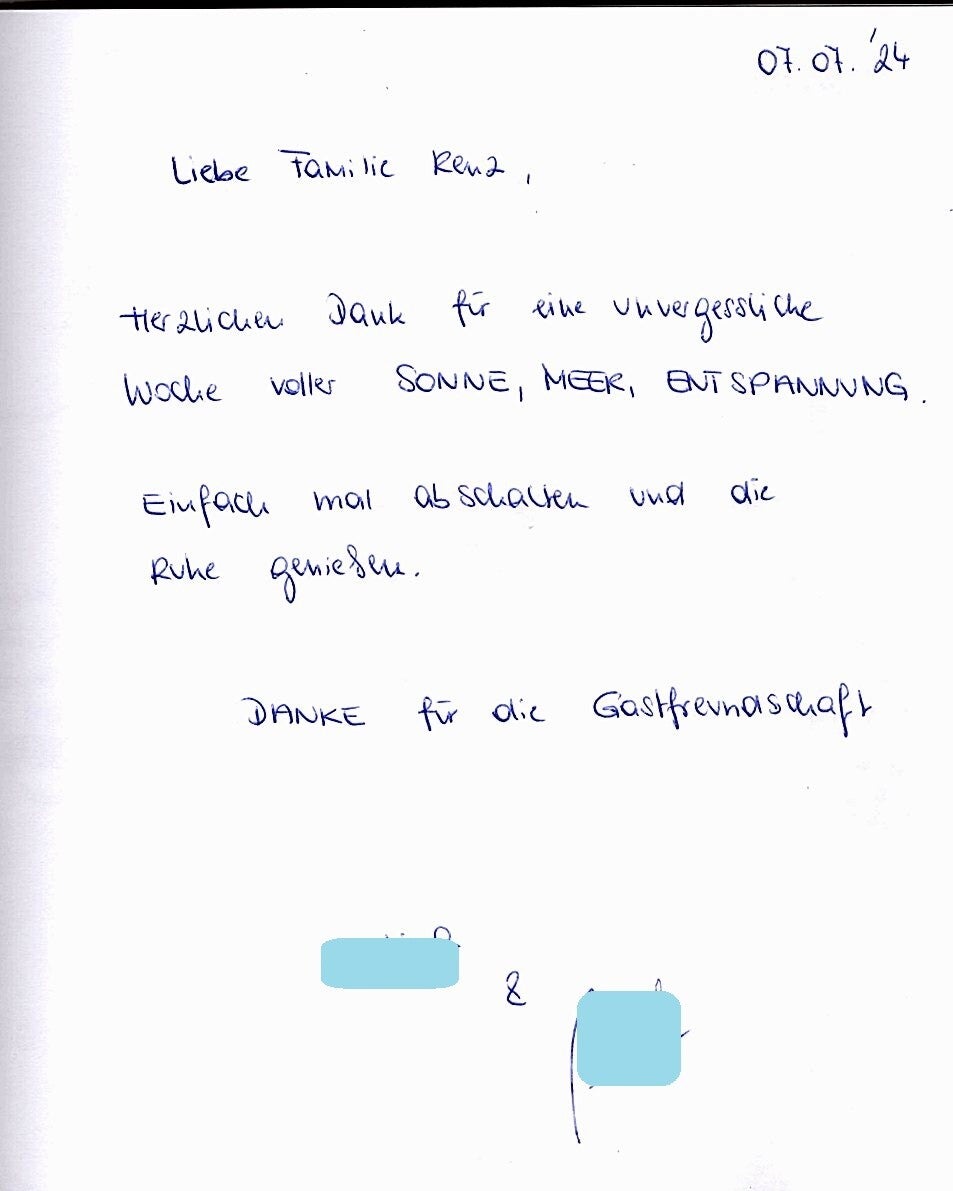 07.07.'24
Liebe Familie Renz,
Herzlichen Dank für eine unvergessliche
Woche voller SONNE, MEER, ENTSPANNUNG.
Einfach mal abschalten und die
Ruhe genießen.
DANKE für die Gastfreundschaft
&